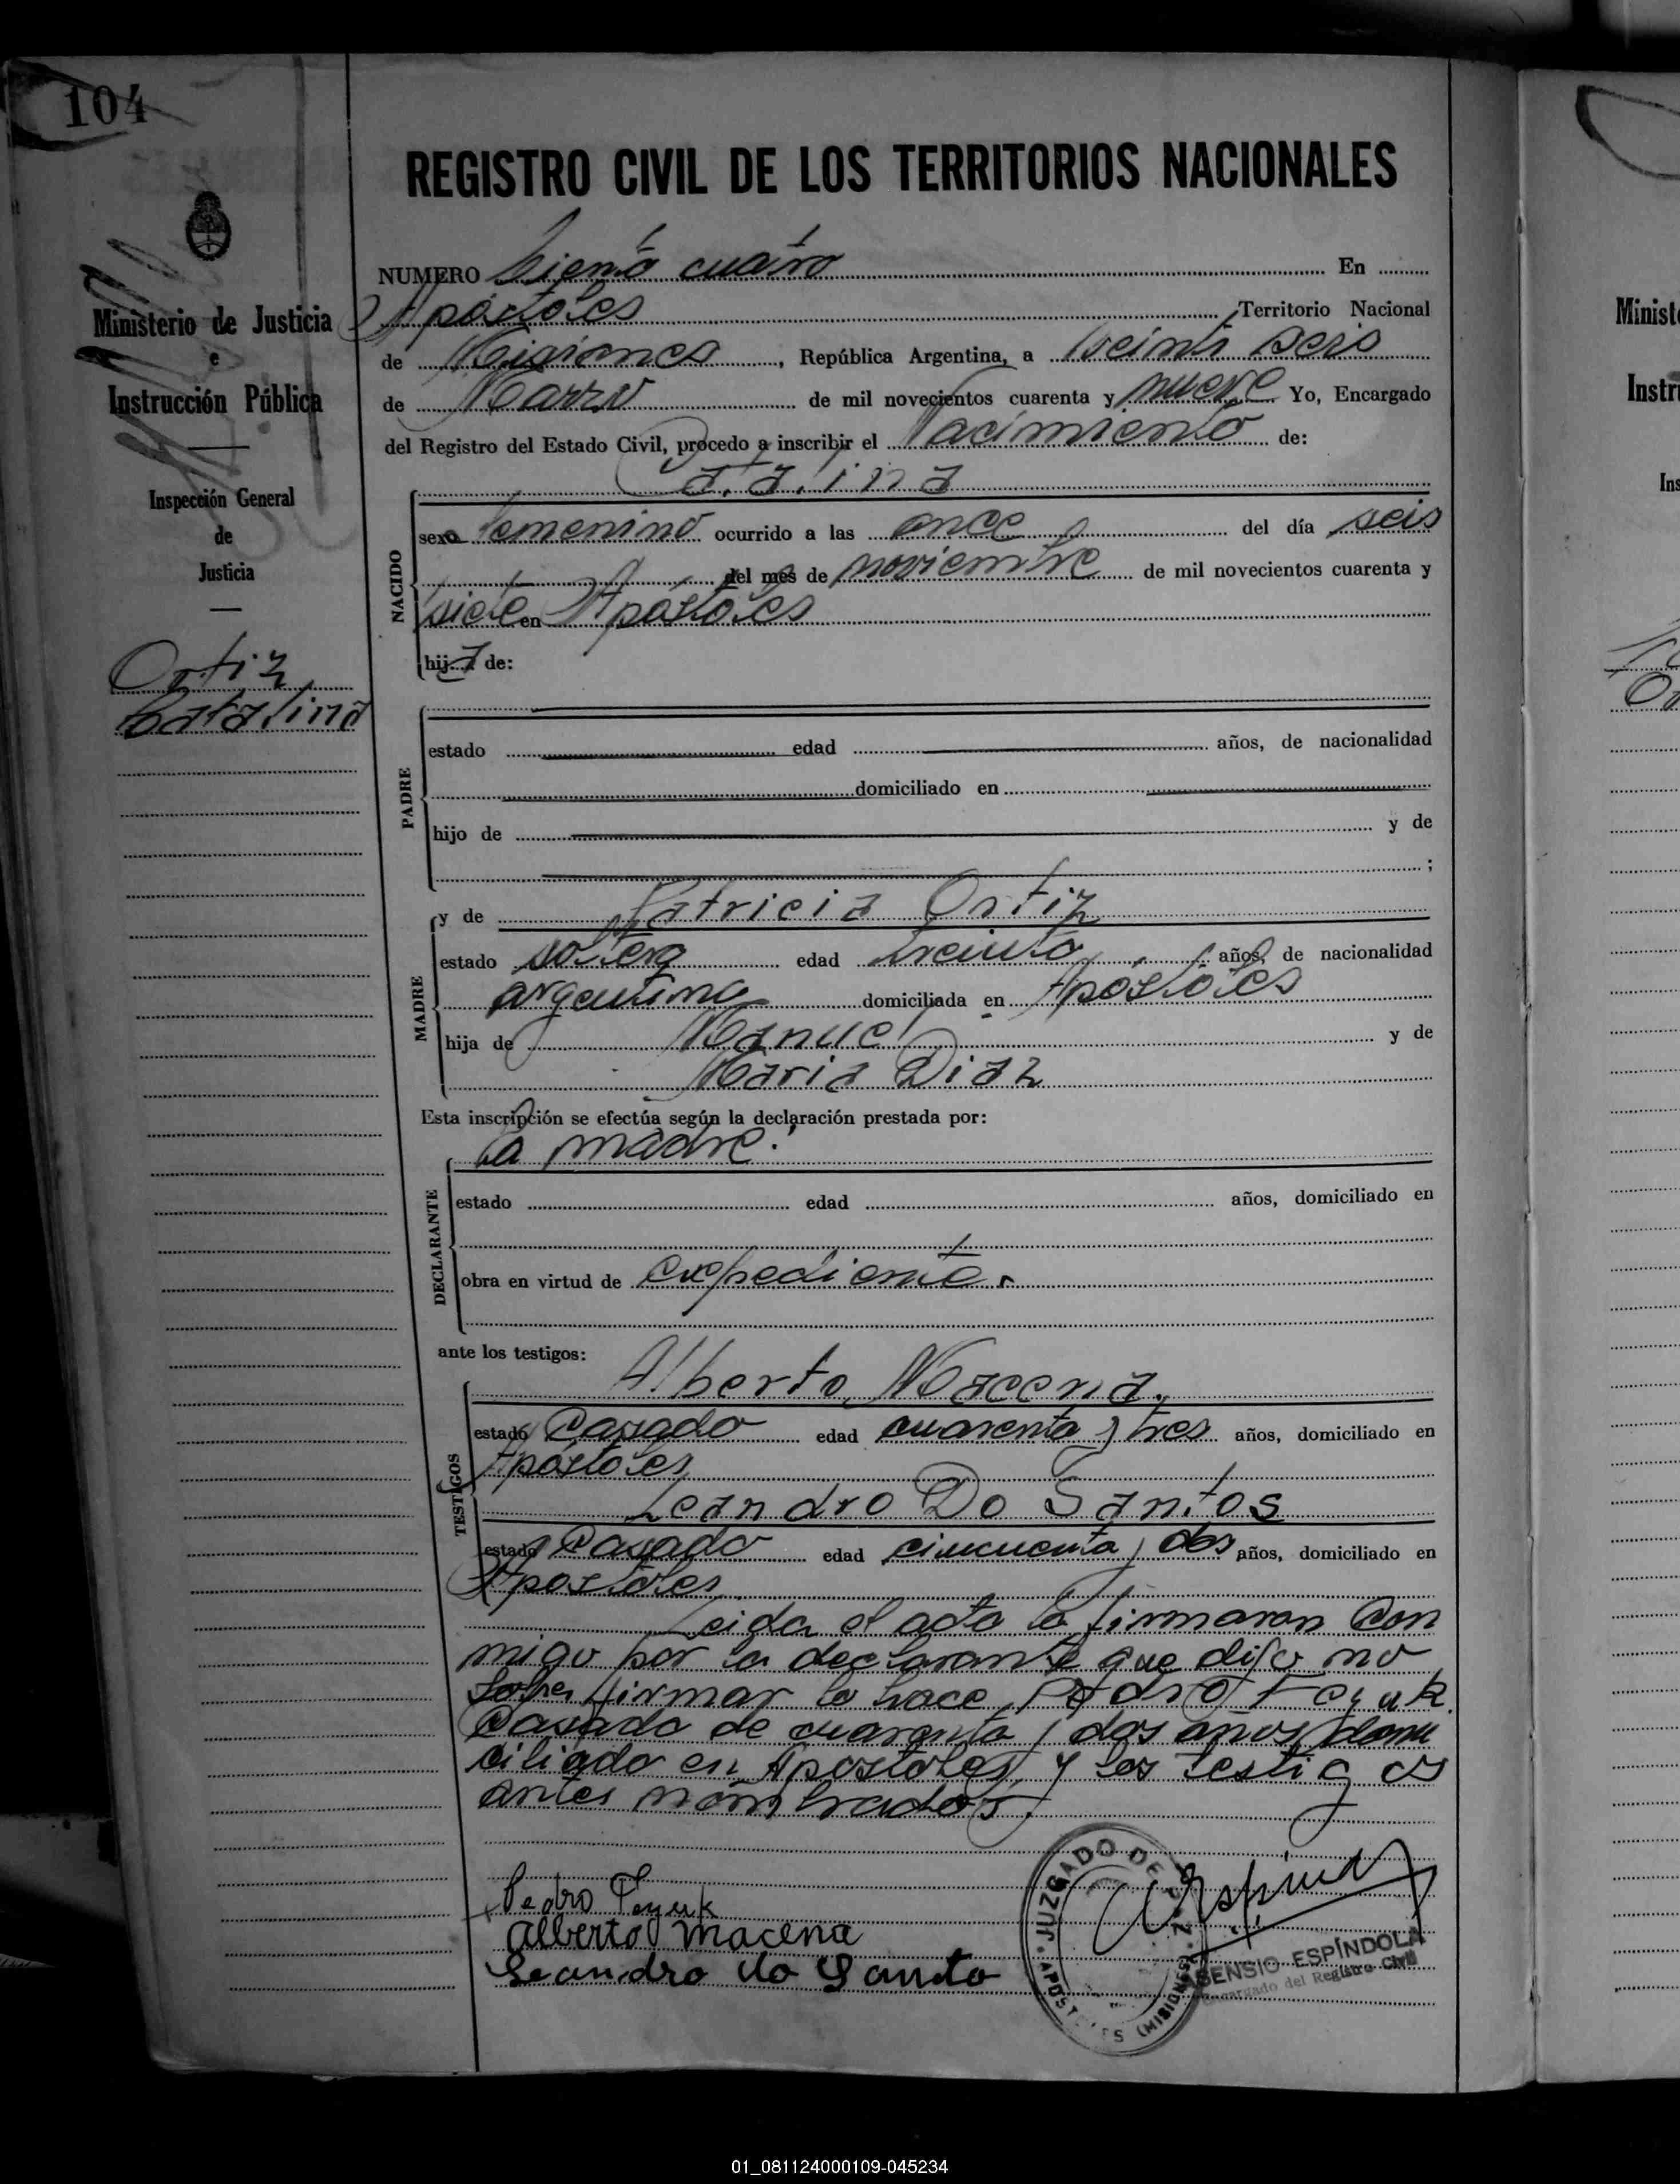 104
REGISTRO CIVIL DE LOS TERRITORIOS NACIONALES
NUMERO Ciento cuatro En
Apóstoles Territorio Nacional
de Misiones, República Argentina, a veinti seis
de Marzo de mil novecientos cuarenta y nueve Yo, Encargado
del Registro del Estado Civil, procedo a inscribir el Nacimiento de:
Catalina
NACIDO
sexo femenino ocurrido a las once del día seis
del mes de noviembre de mil novecientos cuarenta y
siete en Apóstoles
hija de:
Ministerio de Justicia
e
Instrucción Pública
Inspección General
de
Justicia
Ortiz
Catalina
PADRE
estado edad años, de nacionalidad
domiciliado en
hijo de y de
;
MADRE
y de Patricia Ortiz
estado soltera edad treinta años, de nacionalidad
argentina domiciliada en Apóstoles
hija de Manuel y de
Maria Diaz
Esta inscripción se efectúa según la declaración prestada por:
DECLARANTE
la madre.
estado edad años, domiciliado en
obra en virtud de expediente.
ante los testigos:
TESTIGOS
Alberto Macena,
estado Casado edad cuarenta y tres años, domiciliado en
Apóstoles
Leandro Do Santos
estado Casado edad cincuenta y dos años, domiciliado en
Apostoles
Leida el acta la firmaron con
migo por la declarante que dijo no
saber firmar lo hace Pedro
Casado de cuarenta y dos años domi
ciliado en Apostoles, y los testigos
antes nombrados.
Pedro
Alberto Macena
Leandro do Santo
JUZGADO DE PAZ
APOSTOLES (MISIONES)
ASENSIO ESPÍNDOLA
Encargado del Registro Civil
Minist
Instr
Ins
01_081124000109-045234